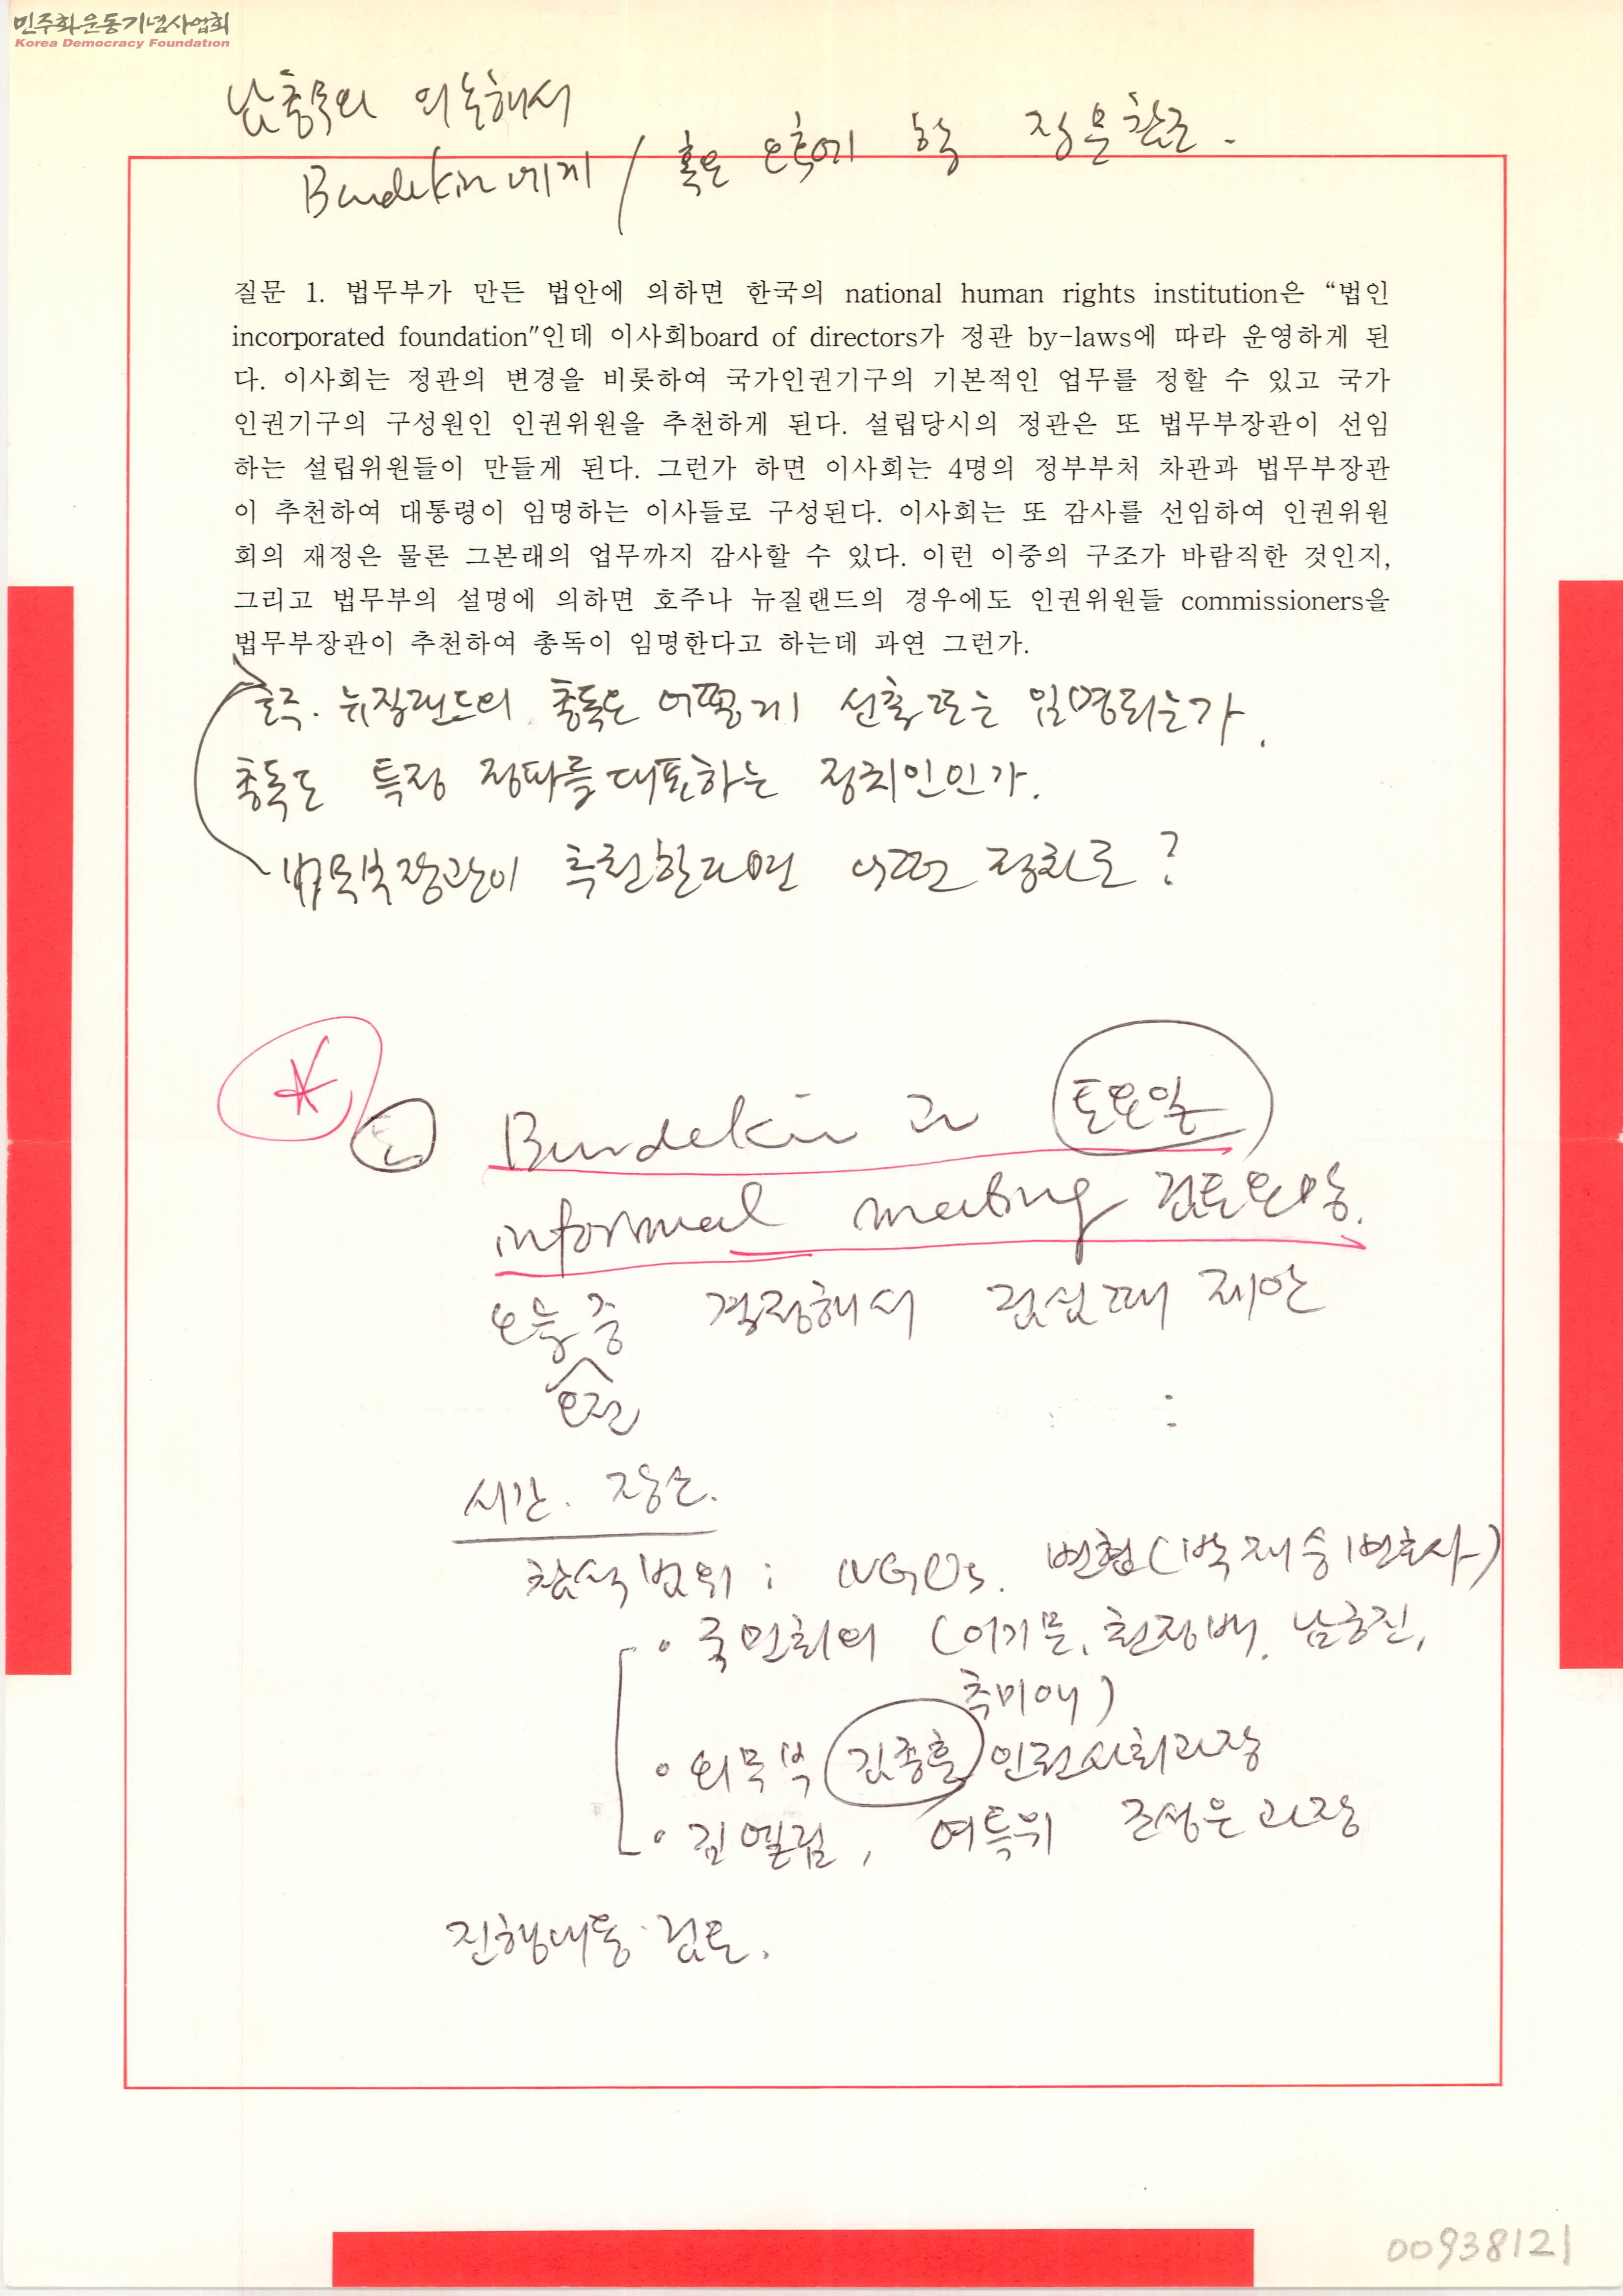 민주화운동기념사업회
Korea Democracy Foundation
남총무와 의논해서
Burdekin에게 / 혹은 오후에 할 질문참고.
질문 1. 법무부가 만든 법안에 의하면 한국의 national human rights institution은 “법인
incorporated foundation"인데 이사회board of directors가 정관 by-laws에 따라 운영하게 된
다. 이사회는 정관의 변경을 비롯하여 국가인권기구의 기본적인 업무를 정할 수 있고 국가
인권기구의 구성원인 인권위원을 추천하게 된다. 설립당시의 정관은 또 법무부장관이 선임
하는 설립위원들이 만들게 된다. 그런가 하면 이사회는 4명의 정부부처 차관과 법무부장관
이 추천하여 대통령이 임명하는 이사들로 구성된다. 이사회는 또 감사를 선임하여 인권위원
회의 재정은 물론 그본래의 업무까지 감사할 수 있다. 이런 이중의 구조가 바람직한 것인지,
그리고 법무부의 설명에 의하면 호주나 뉴질랜드의 경우에도 인권위원들 commissioners을
법무부장관이 추천하여 총독이 임명한다고 하는데 과연 그런가.
호주. 뉴질랜드의 총독은 어떻게 선출 또는 임명되는가.
총독도 특정 정파를 대표하는 정치인인가.
법무부장관이 추천한다면 어떤 절차로?
토. Burdekin과 토요일
informal meeting 검토요망.
오늘 중 결정해서 점심때 제안
오전
시간. 장소.
참석범위: NGOs. 변협(박재승변호사)
• 국민회의 (이기문, 천정배, 남궁진,
추미애)
• 외무부 김종훈 인권사회과장
• 김엘림, 여특위 조성은과장
진행내용 검토.
00938121